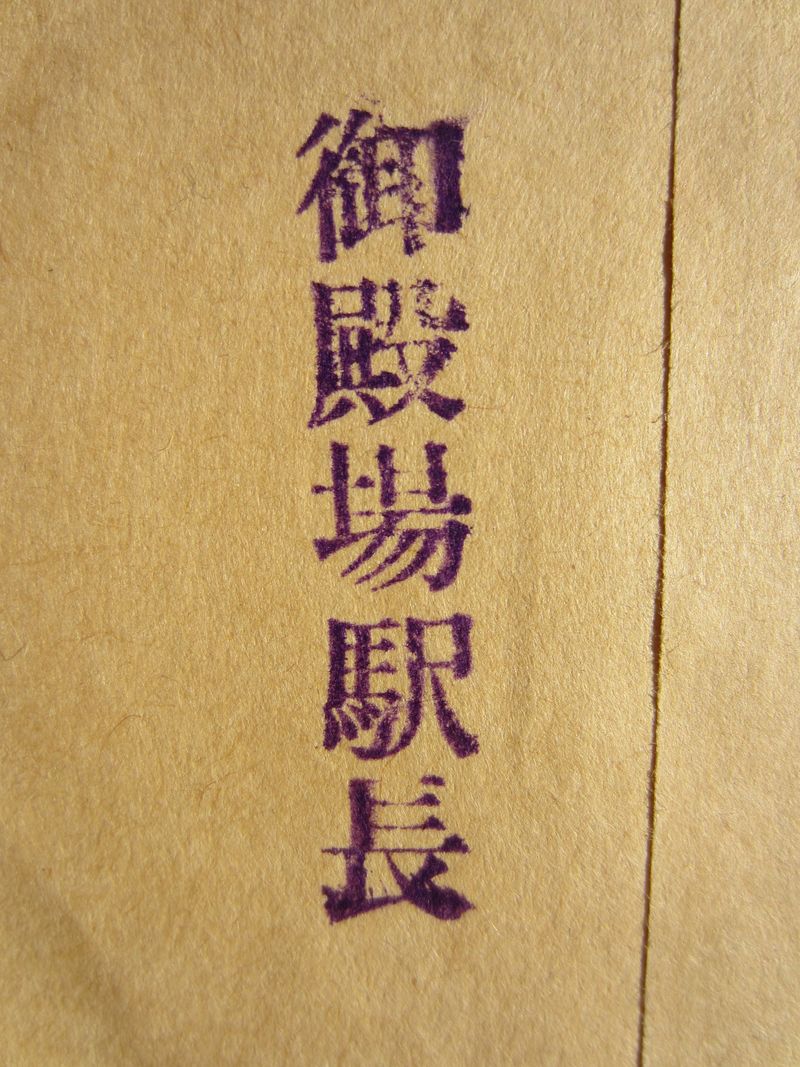 御殿場駅長